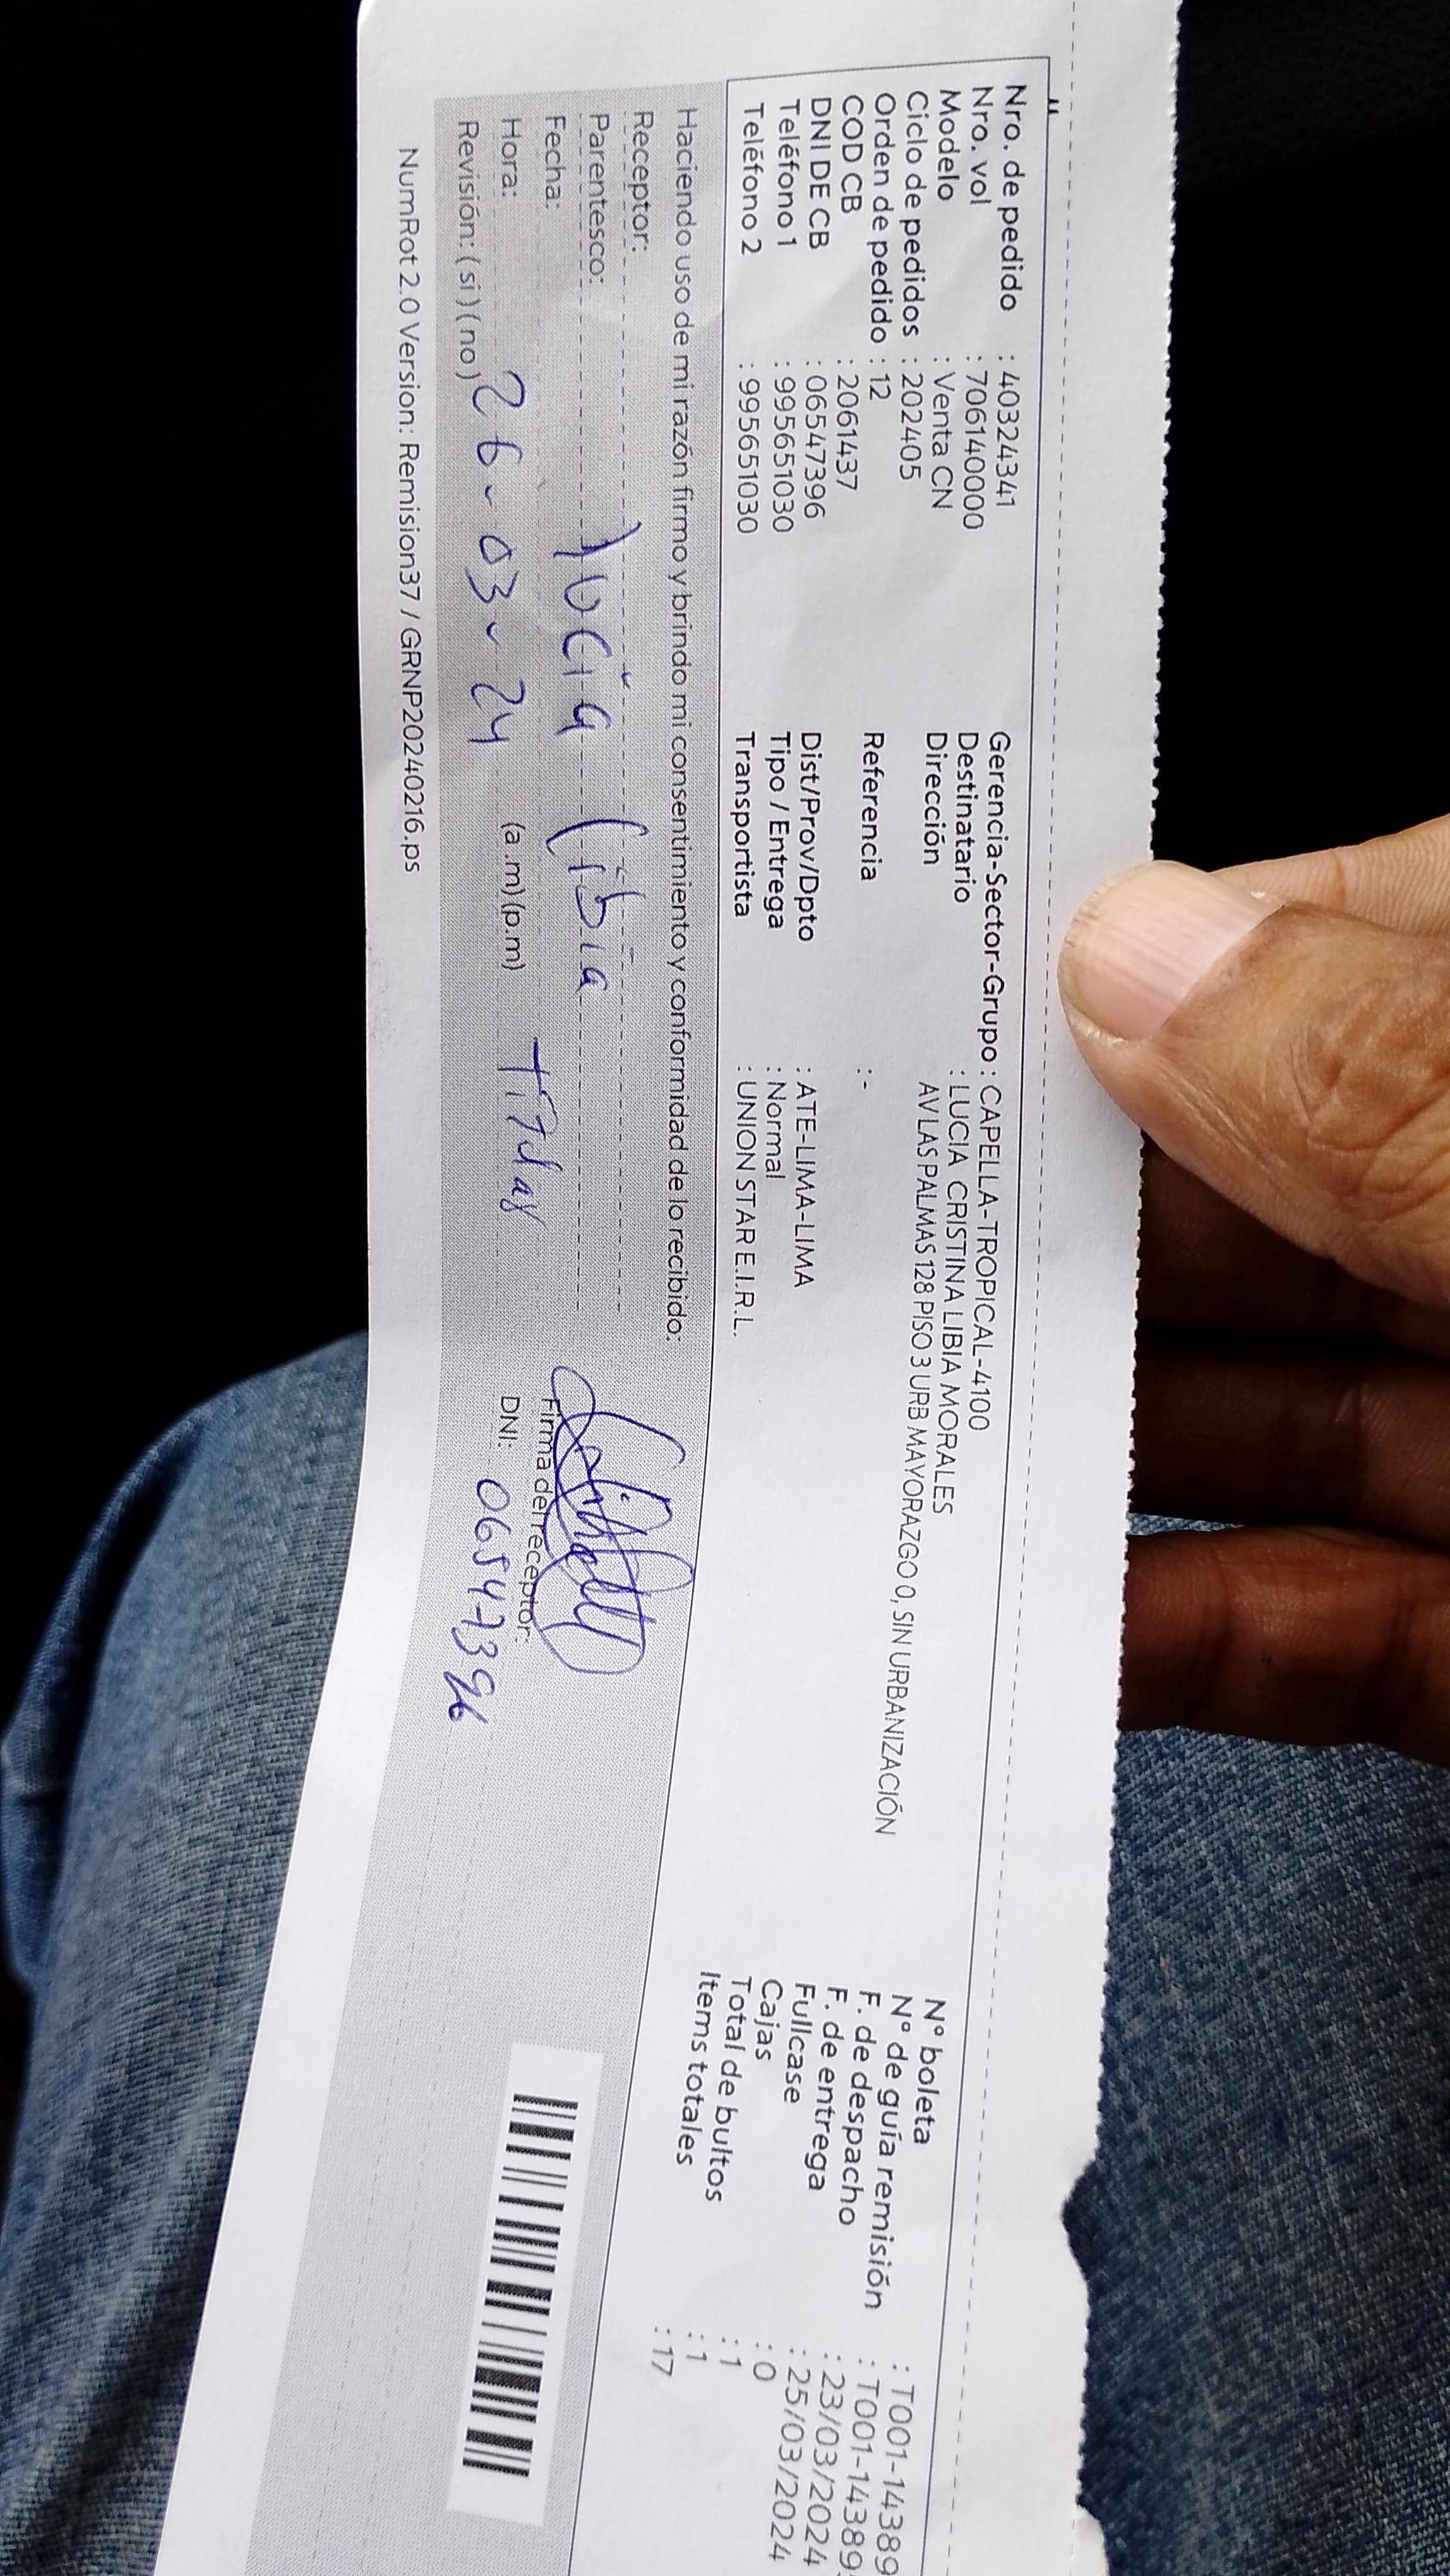 Nro. de pedido : 40324341
Nro. vol : 706140000
Modelo : Venta CN
Ciclo de pedidos : 202405
Orden de pedido : 12
COD CB : 2061437
DNI DE CB : 06547396
Teléfono 1 : 995651030
Teléfono 2 : 995651030
Gerencia-Sector-Grupo : CAPELLA-TROPICAL-4100
Destinatario : LUCIA CRISTINA LIBIA MORALES
Dirección AV LAS PALMAS 128 PISO 3 URB MAYORAZGO 0, SIN URBANIZACIÓN
Referencia :-
Dist/Prov/Dpto : ATE-LIMA-LIMA
Tipo / Entrega : Normal
Transportista : UNION STAR E.I.R.L.
N° boleta : T001-14389
N° de guía remisión : T001-14389
F. de despacho : 23/03/2024
F. de entrega : 25/03/2024
Fullcase : 0
Cajas : 1
Total de bultos : 1
Items totales : 17
Haciendo uso de mi razón firmo y brindo mi consentimiento y conformidad de lo recibido:
Receptor:
Parentesco: Lucia Libia
Fecha:
Hora: (a.m)(p.m) Titular
Revisión: (si)(no) 26-03-24
Firma del receptor:
DNI: 06547396
NumRot 2.0 Version: Remision37 / GRNP20240216.ps